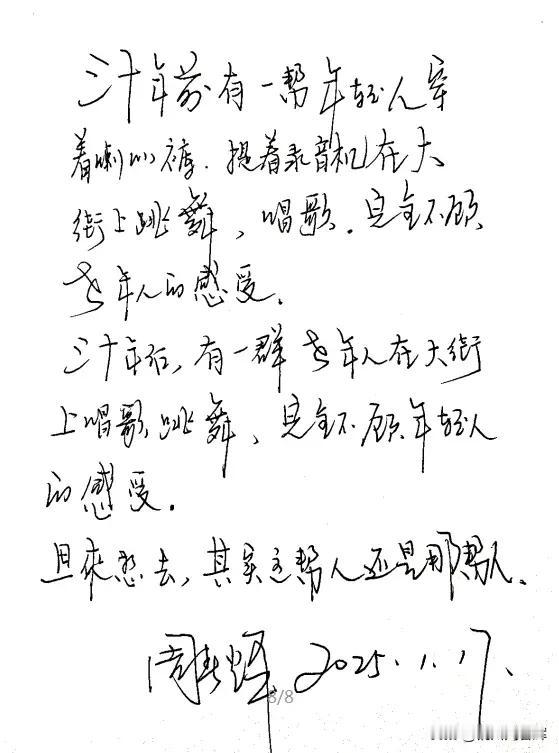 三十年前有一帮年轻人穿
着喇叭裤.提着录音机在大
街上跳舞、唱歌.完全不顾
老年人的感受.
三十年后,有一群老年人在大街
上唱歌跳舞、完全不顾年轻人
的感受.
且来想去,其实这帮人还是那帮人.
2025.1.17.
8/8